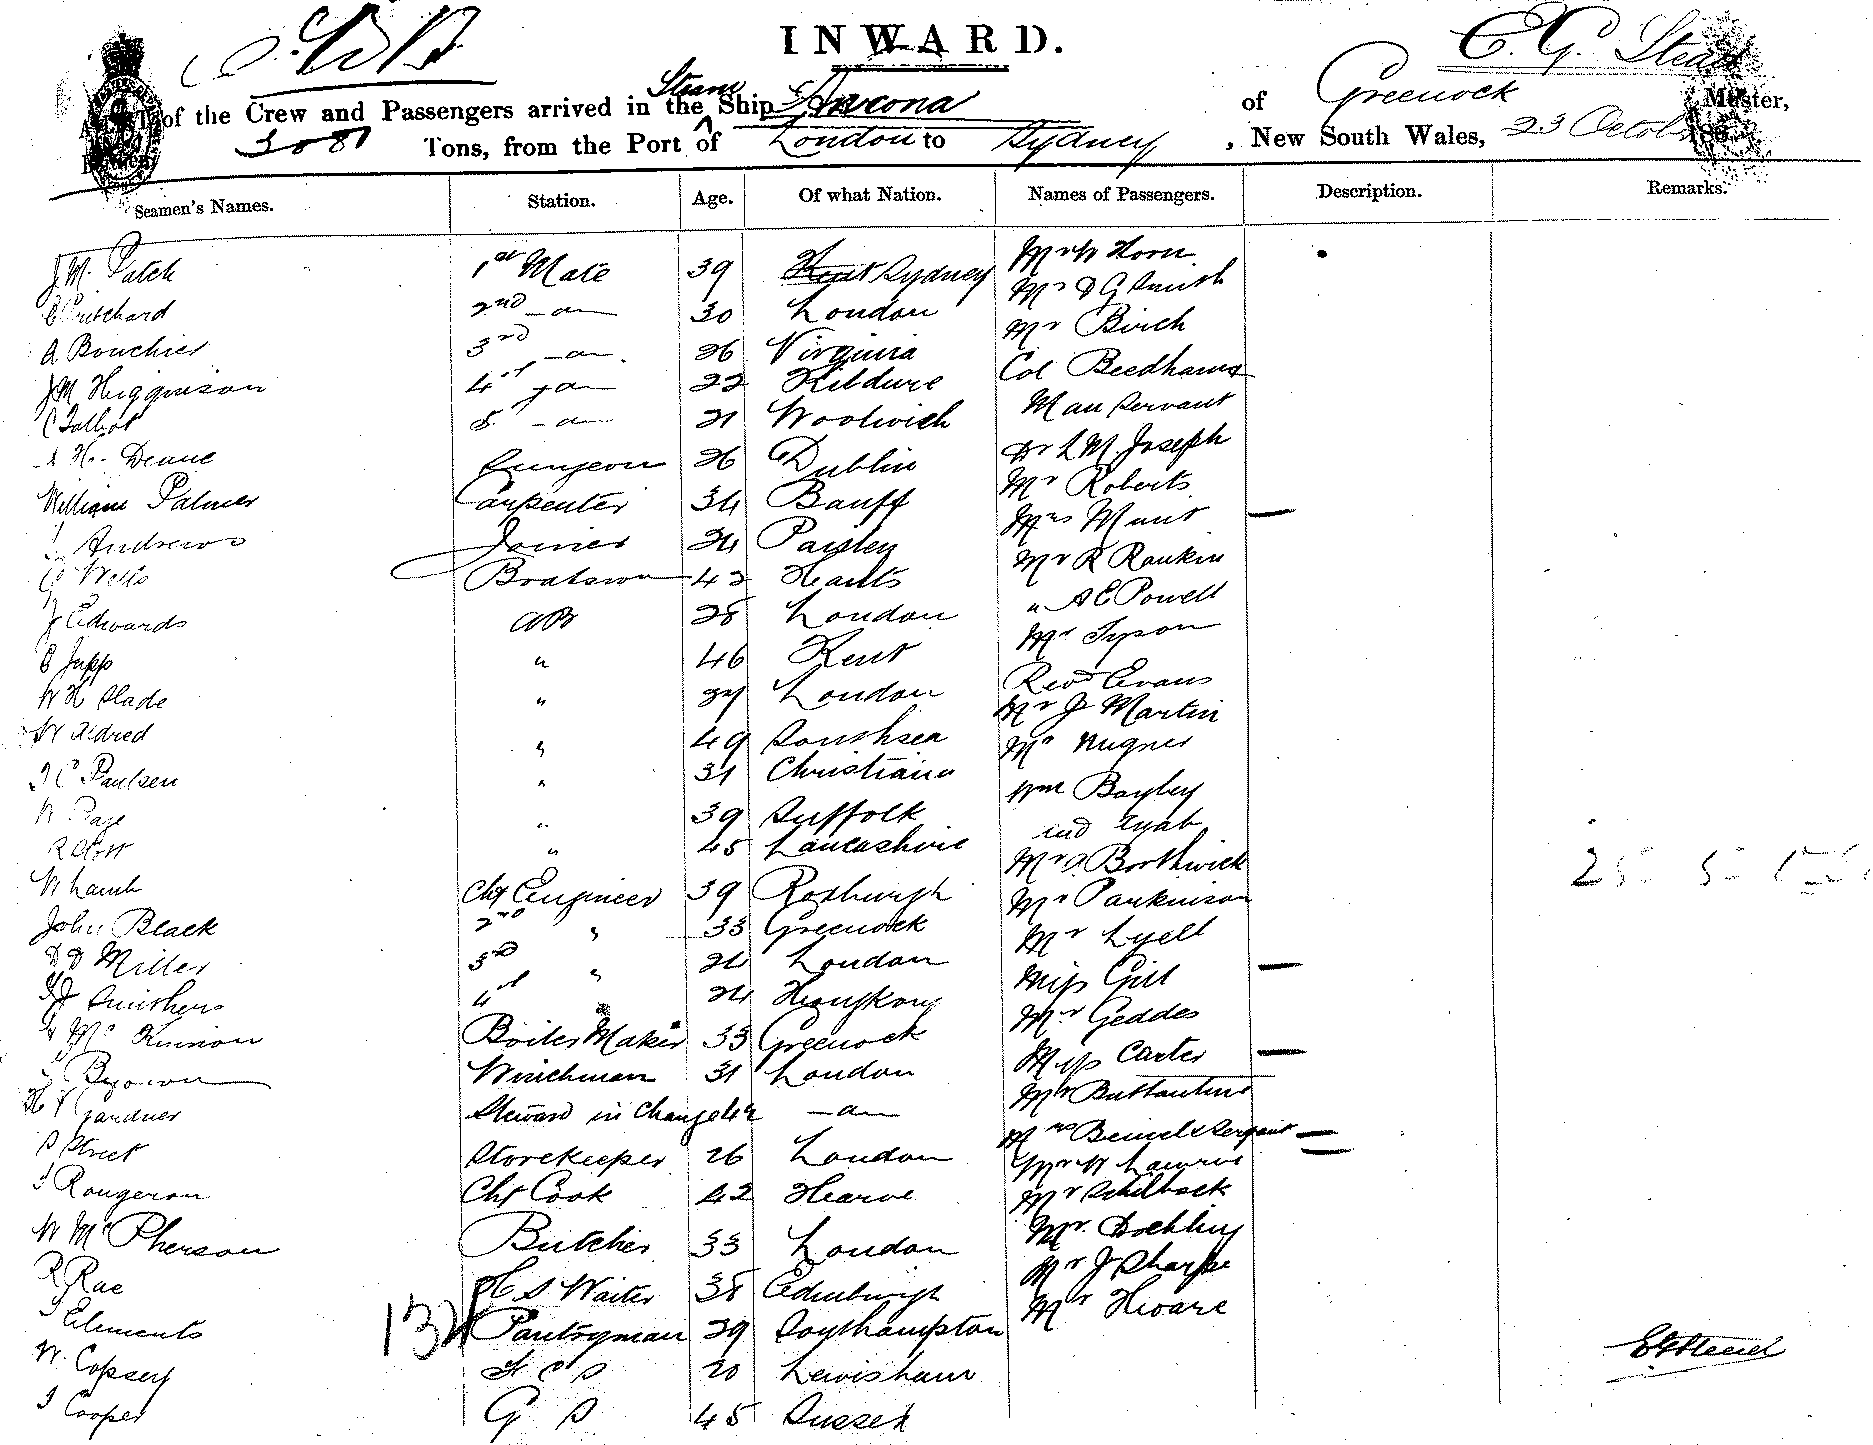 INWARD.
C. G. Stead
of the Crew and Passengers arrived in the Steam Ship Ancona of Greenock Master,
3081 Tons, from the Port of London to Sydney, New South Wales, 23 October
Seamen's Names. Station. Age. Of what Nation. Names of Passengers. Description. Remarks.
J M. Patch 1st Mate 39 Kent Sydney Mr W Horn
Pritchard 2nd do 30 London Mr D G Smith
A Bouchier 3rd do 26 Virginia Mr Birch
J M Higginson 4th do 22 Kildare Col Beedhams
C Talbot 5 do 21 Woolwich Man Servant
H. Deane Surgeon 26 Dublin M Joseph
William Palmer Carpenter 34 Banff Mr Roberts
Andrews Joiner 24 Paisley Mrs Munt
G Wells Boatswn 42 Heants Mr R Rankin
J Edwards AB 28 London " A E Powell
E Jupp " 46 Kent Mr Tyson
W H Slade " 27 London Revd Evans
W Aldred " 49 Southsea Mr J Martin
C Paulsen " 31 Christiana Mr Wagner
W Page " 39 Suffolk Wm Bayley
R Clott " 45 Lancashire ind Eyab
W Lamb Chf Engineer 39 Roxburgh Borthwick
John Black 2nd " 33 Greenock Mr Parkinson
D D Miller 3rd " 24 London Mr Lyell
J Smithers 4th " 24 Hongkong Miss Gill
Mc Kinnon Boiler Maker 33 Greenock Mr Geddes
Brown Winchman 31 London Miss Carter
Gardner Steward in Charge 42 do
S Street Storekeeper 26 London
Rougeron Chf Cook 42 Hearve Mr W Lawrie
W McPherson Butcher 33 London Mr Schilback
R Rae S Waiter 38 Edinburgh Mr.
Clements Pantryman 29 Southampton Mr J Sharpe
W. Copsey 20 Lewisham Mr Hoare
Cooper G S 45 Sussex
132